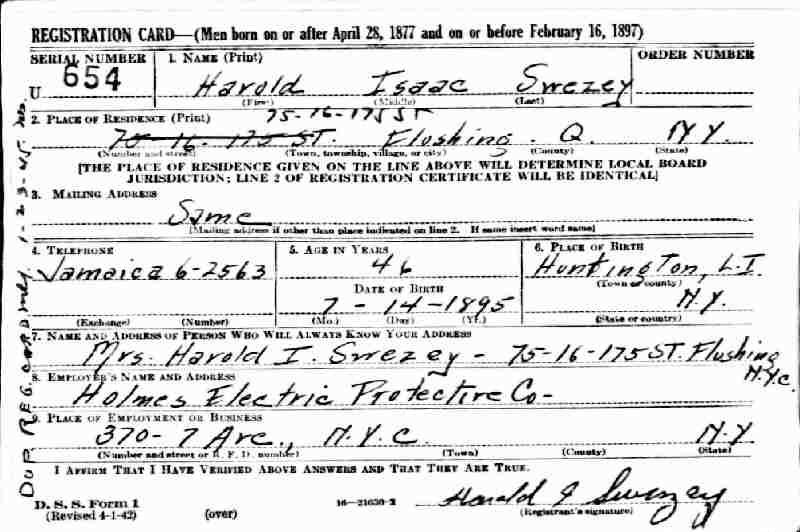 REGISTRATION CARD—(Men born on or after April 28, 1877 and on or before February 16, 1897)
SERIAL NUMBER
1. NAME (Print)
ORDER NUMBER
U 654
Harold Isaac Swezey
(First) (Middle) (Last)
75-16-175 ST
2. PLACE OF RESIDENCE (Print)
75-16-175 ST. Flushing. Q. N.Y.
(Number and street) (Town, township, village, or city) (County) (State)
[THE PLACE OF RESIDENCE GIVEN ON THE LINE ABOVE WILL DETERMINE LOCAL BOARD
JURISDICTION; LINE 2 OF REGISTRATION CERTIFICATE WILL BE IDENTICAL]
3. MAILING ADDRESS
Same
[Mailing address if other than place indicated on line 2. If same insert word same]
4. TELEPHONE
5. AGE IN YEARS
6. PLACE OF BIRTH
Jamaica 6-2563
46
Huntington, L.I.
(Town or county)
DATE OF BIRTH
7-14-1895
N.Y.
(Exchange) (Number)
(Mo.) (Day) (Yr.)
(State or country)
7. NAME AND ADDRESS OF PERSON WHO WILL ALWAYS KNOW YOUR ADDRESS
Mrs. Harold I. Swezey - 75-16-175 ST. Flushing
N.Y.C.
8. EMPLOYER'S NAME AND ADDRESS
Holmes Electric Protective Co-
9. PLACE OF EMPLOYMENT OR BUSINESS
370-7 Ave., N.Y.C. N.Y
(Number and street or R. F. D. number) (Town) (County) (State)
I AFFIRM THAT I HAVE VERIFIED ABOVE ANSWERS AND THAT THEY ARE TRUE.
D. S. S. Form 1
(Revised 4-1-42)
(over)
16—21630-2
Harold I Swezey
(Registrant's signature)
DUP REG CARD 1-23-45